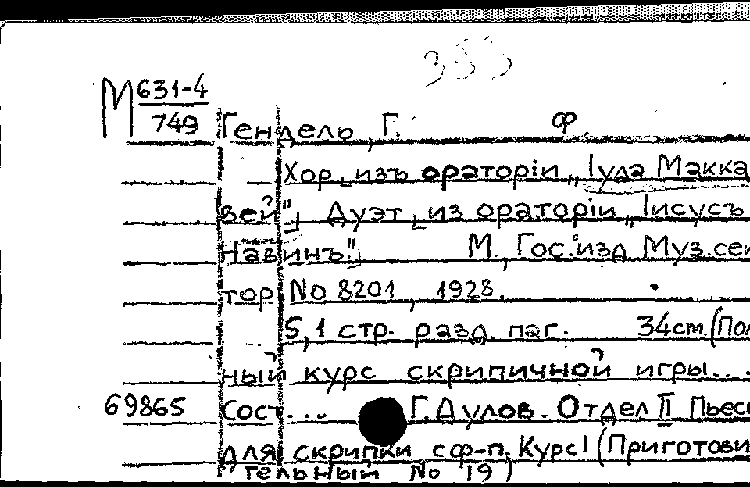 353
М 631-4
749
Гендель, Г. Ф
Хор изъ ораторіи „Іуда Макка
вей", Дуэт из ораторіи „Іисусъ
Навинъ". М., Гос. изд. Муз. сек
тор No 8201, 1928.
5,1 стр. разд. паг. 34см (Пол
ный курс скрипичной игры...
69865 Сост... Г. Дулов. Отдел II Пьесы
для скрипки с ф-п. Курс I (Приготови
тельный No 19)